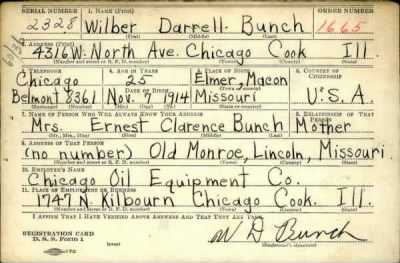 SERIAL NUMBER 1. NAME (Print) ORDER NUMBER
2328 Wilber Darrell Bunch 1665
(First) (Middle) (Last)
2. ADDRESS (Print)
4316 W. North Ave. Chicago Cook Ill.
(Number and street or R. F. D. number) (Town) (County) (State)
3. TELEPHONE 4. AGE IN YEARS 5. PLACE OF BIRTH 6. COUNTRY OF CITIZENSHIP
Chicago 25 Elmer, Macon
(Town or county)
DATE OF BIRTH
Belmont 8361 Nov. 7 1914 Missouri U.S.A.
(Exchange) (Number) (Mo.) (Day) (Yr.) (State or country)
7. NAME OF PERSON WHO WILL ALWAYS KNOW YOUR ADDRESS 8. RELATIONSHIP OF THAT PERSON
Mrs. Ernest Clarence Bunch Mother
(Mr., Mrs., Miss) (First) (Middle) (Last)
9. ADDRESS OF THAT PERSON
(no number) Old Monroe, Lincoln, Missouri
(Number and street or R. F. D. number) (Town) (County) (State)
10. EMPLOYER'S NAME
Chicago Oil Equipment Co.
11. PLACE OF EMPLOYMENT OR BUSINESS
1747 N. Kilbourn Chicago Cook. Ill.
(Number and street or R. F. D. number) (Town) (County) (State)
I AFFIRM THAT I HAVE VERIFIED ABOVE ANSWERS AND THAT THEY ARE TRUE.
REGISTRATION CARD
D. S. S. Form 1 (over) W D Bunch
(Registrant's signature)